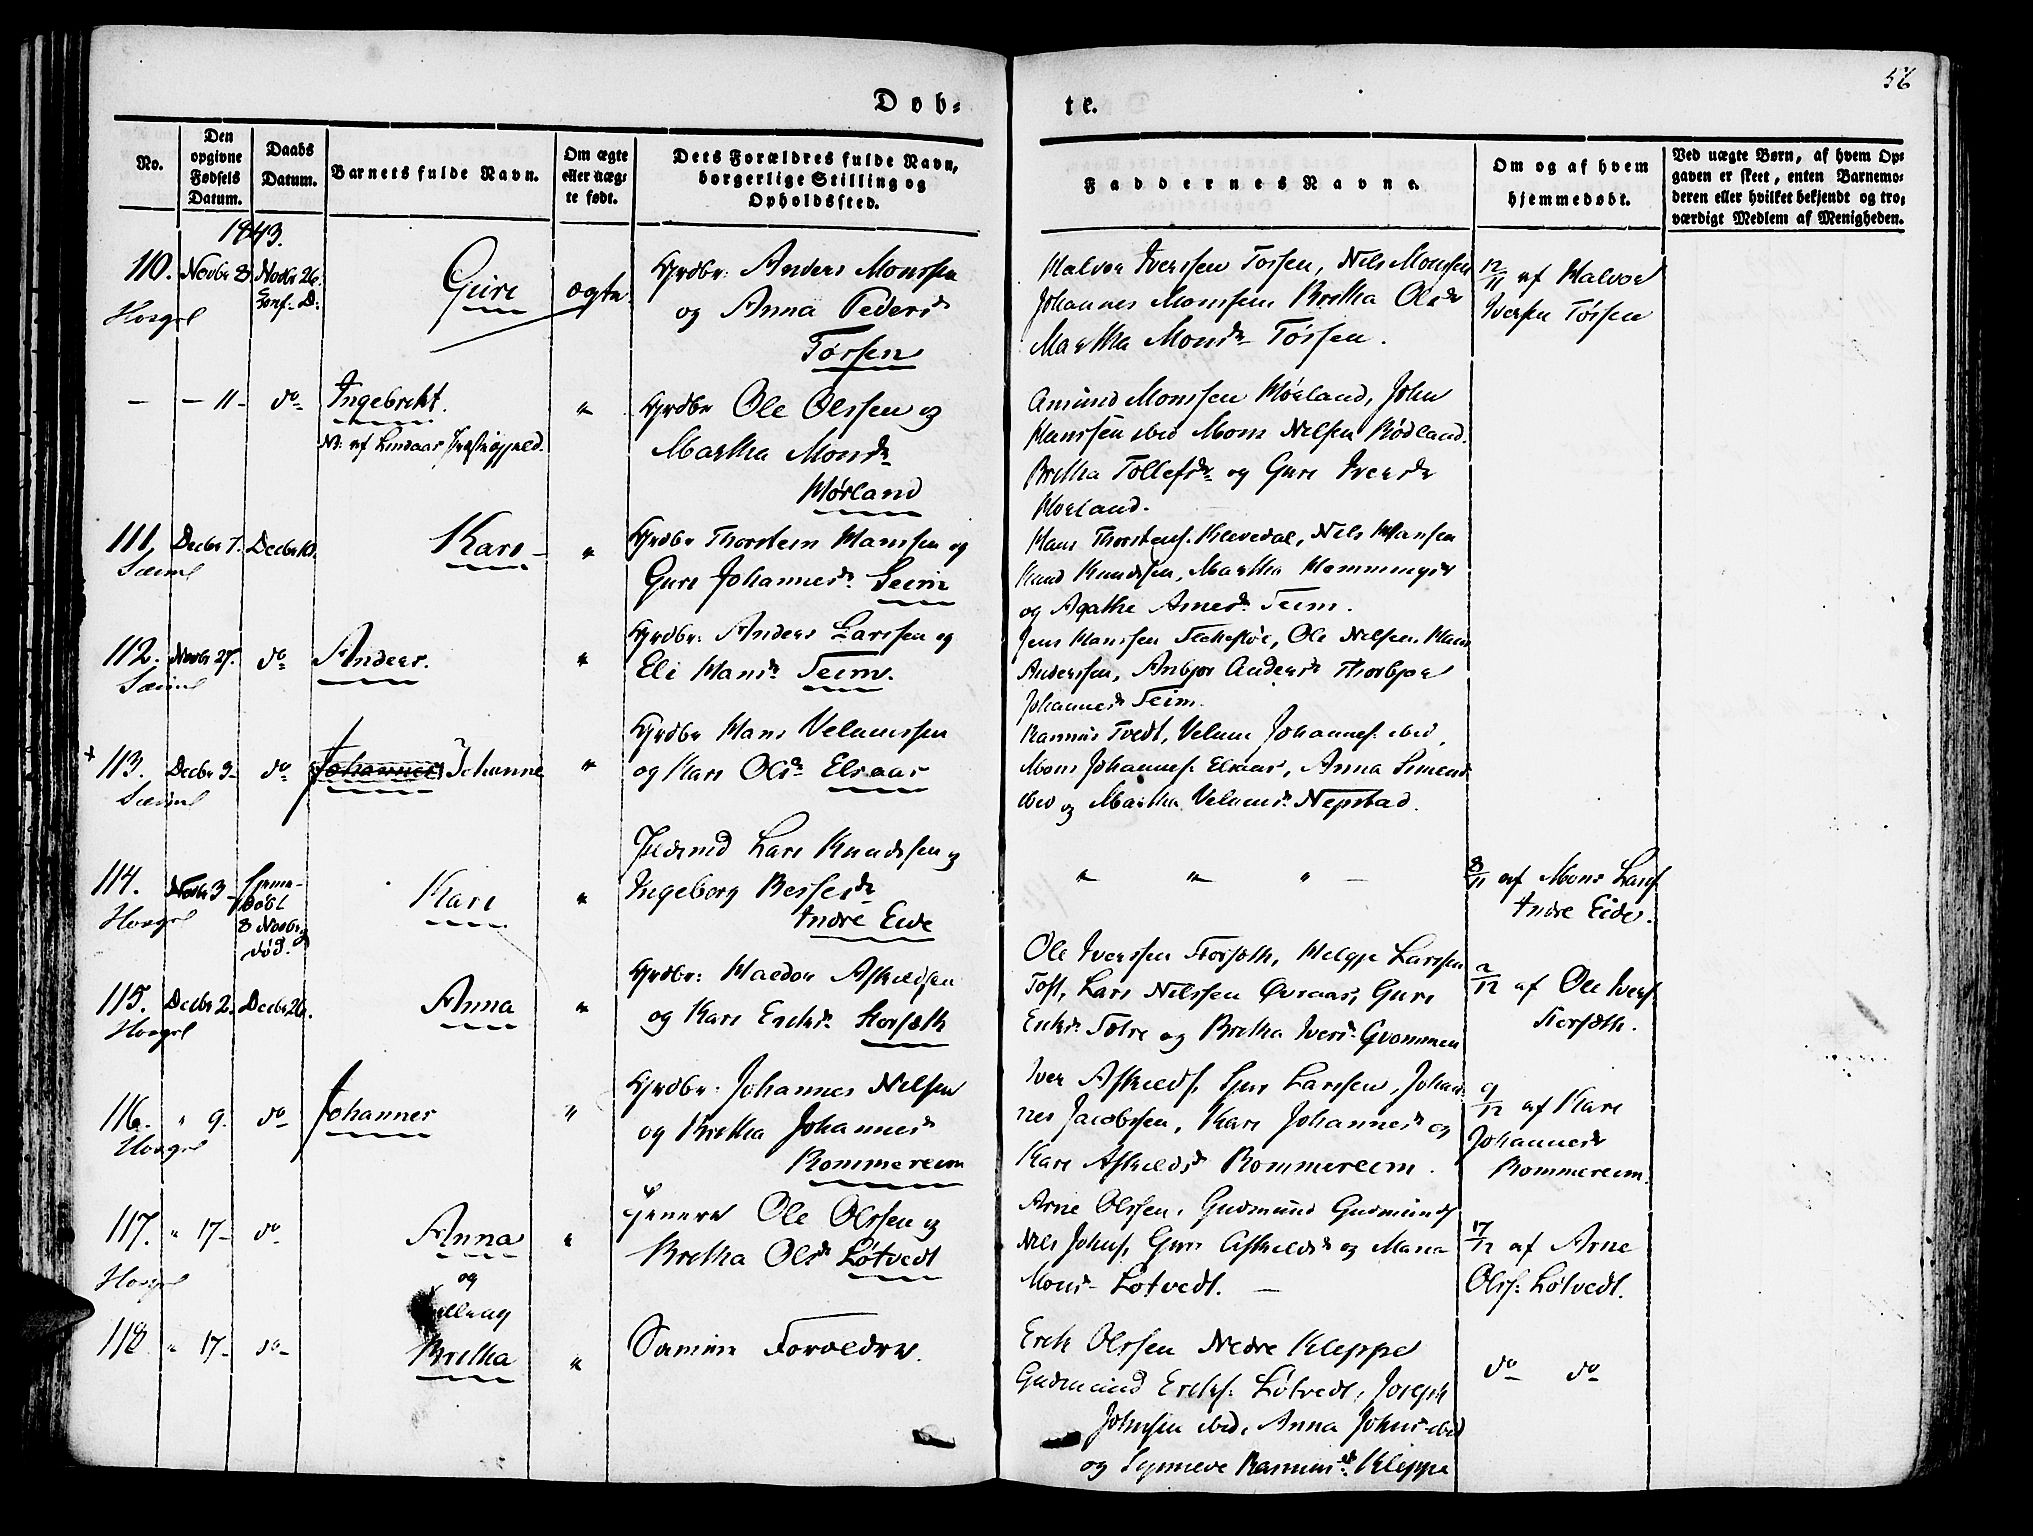 56
Døb-
te.
No.
Den opgivne Fødsels Datum.
Daabs Datum.
Barnets fulde Navn.
Om ægte eller uæg-
te født.
Dets Forældres fulde Navn,
borgerlige Stilling og
Opholdssted.
Faddernes Navne.
Om og af hvem
hjemmedøbt.
Ved uægte Børn, af hvem Op-
gaven er skeet, enten Barnemo-
deren eller hvilket bekjendt og tro-
værdigt Medlem af Menigheden.
1843.
110. Novbr 8 Novbr 26. Guri ægte Grdbr: Anders Monssen
og Anna Peders
Tøssen
Halvor Iverssen Tøssen, Nils Monssen
Johannes Monssen Bretha Olsdr
Martha Monsdr Tøssen.
12/11 af Halvor
Iversen Tøssen
— — 11 - do Ingebrikt. " Grdbr Ole Olssen og
Martha Monsdr
Hørland
Amund Monssen Hørland, John
Hanssen ibid Mons Nilsen Rødland.
Bretha Tollefsdr og Guri Iversdr
Hørland.
111. Decbr 7. Decbr 10. Kari — " Grdbr Thorstein Hanssen og
Guri Johannesdr Seim
Nils Hansen
Knud Knudssen, Martha Hemmingsdr
og Agathe Arnesdr Seim.
112. Novbr 27. do Anders. " Grdbr: Anders Larssen og
Eli Hansdr Seim.
Ole Nilssen, Hans
Anderssen, Anbjør Andersdr Thorbjør
Johannesdr Seim.
+ 113. Decbr 3 - do Johannes Johanne " Grdbr Hans Velumssen
og Kari Olsdr Elsaas
Rasmus Tvedt, Velum Johannes. ibid,
Mons Johannes. Elsaas, Anna Simens
ibid og Martha Velumsdr Nepstad.
114. Novbr 3 - Hjeme-
døbt
8 Novbr
død. Kari " Lars Knudssen og
Ingeborg Bessesdr
Indre Eide
" " " —
8/11 af Mons Larss
Indre Eide.
115. Decbr 2. Decbr 26. Anna " Grdbr: Haldor Askildsen
og Kari Eriksdr Storsæth
Ole Iverssen Storsæth, Helgje Larssen
Toft, Lars Nilssen Øvraas, Guri
Eriksdr Sætre og Bretha Iversdr Gvammen
2/12 af Ole Ivers.
Storsæth.
116. " 9. do Johannes " Grdbr: Johannes Nilsen
og Bretha Johannesdr
Rommereim
Iver Askilds. Larssen, Johan-
nes Jacobssen, Kari Johannesdr og
Kari Askildsdr Rommereim.
9/12 af Kari
Johannesdr
Rommereim.
117. " 17 - do Anna " Ole Olssen og
Bretha Olsdr Løtvedt
Arne Olssen, Gudmund Gudmunds
Nils Johns. Guri Askildsdr og Maria
Monsdr Løtvedt. —
17/12 af Arne
Olss: Løtvedt.
og
Tvilling
118. " 17 - do - Bretha " Samme Forældre.
Erik Olssen Nedre Kleppe
Gudmund Eriks. Løtvedt, Joseph
Johnsen ibid, Anna Johnsdr ibid
og Synneve Rasmusdr Kleppe
do do